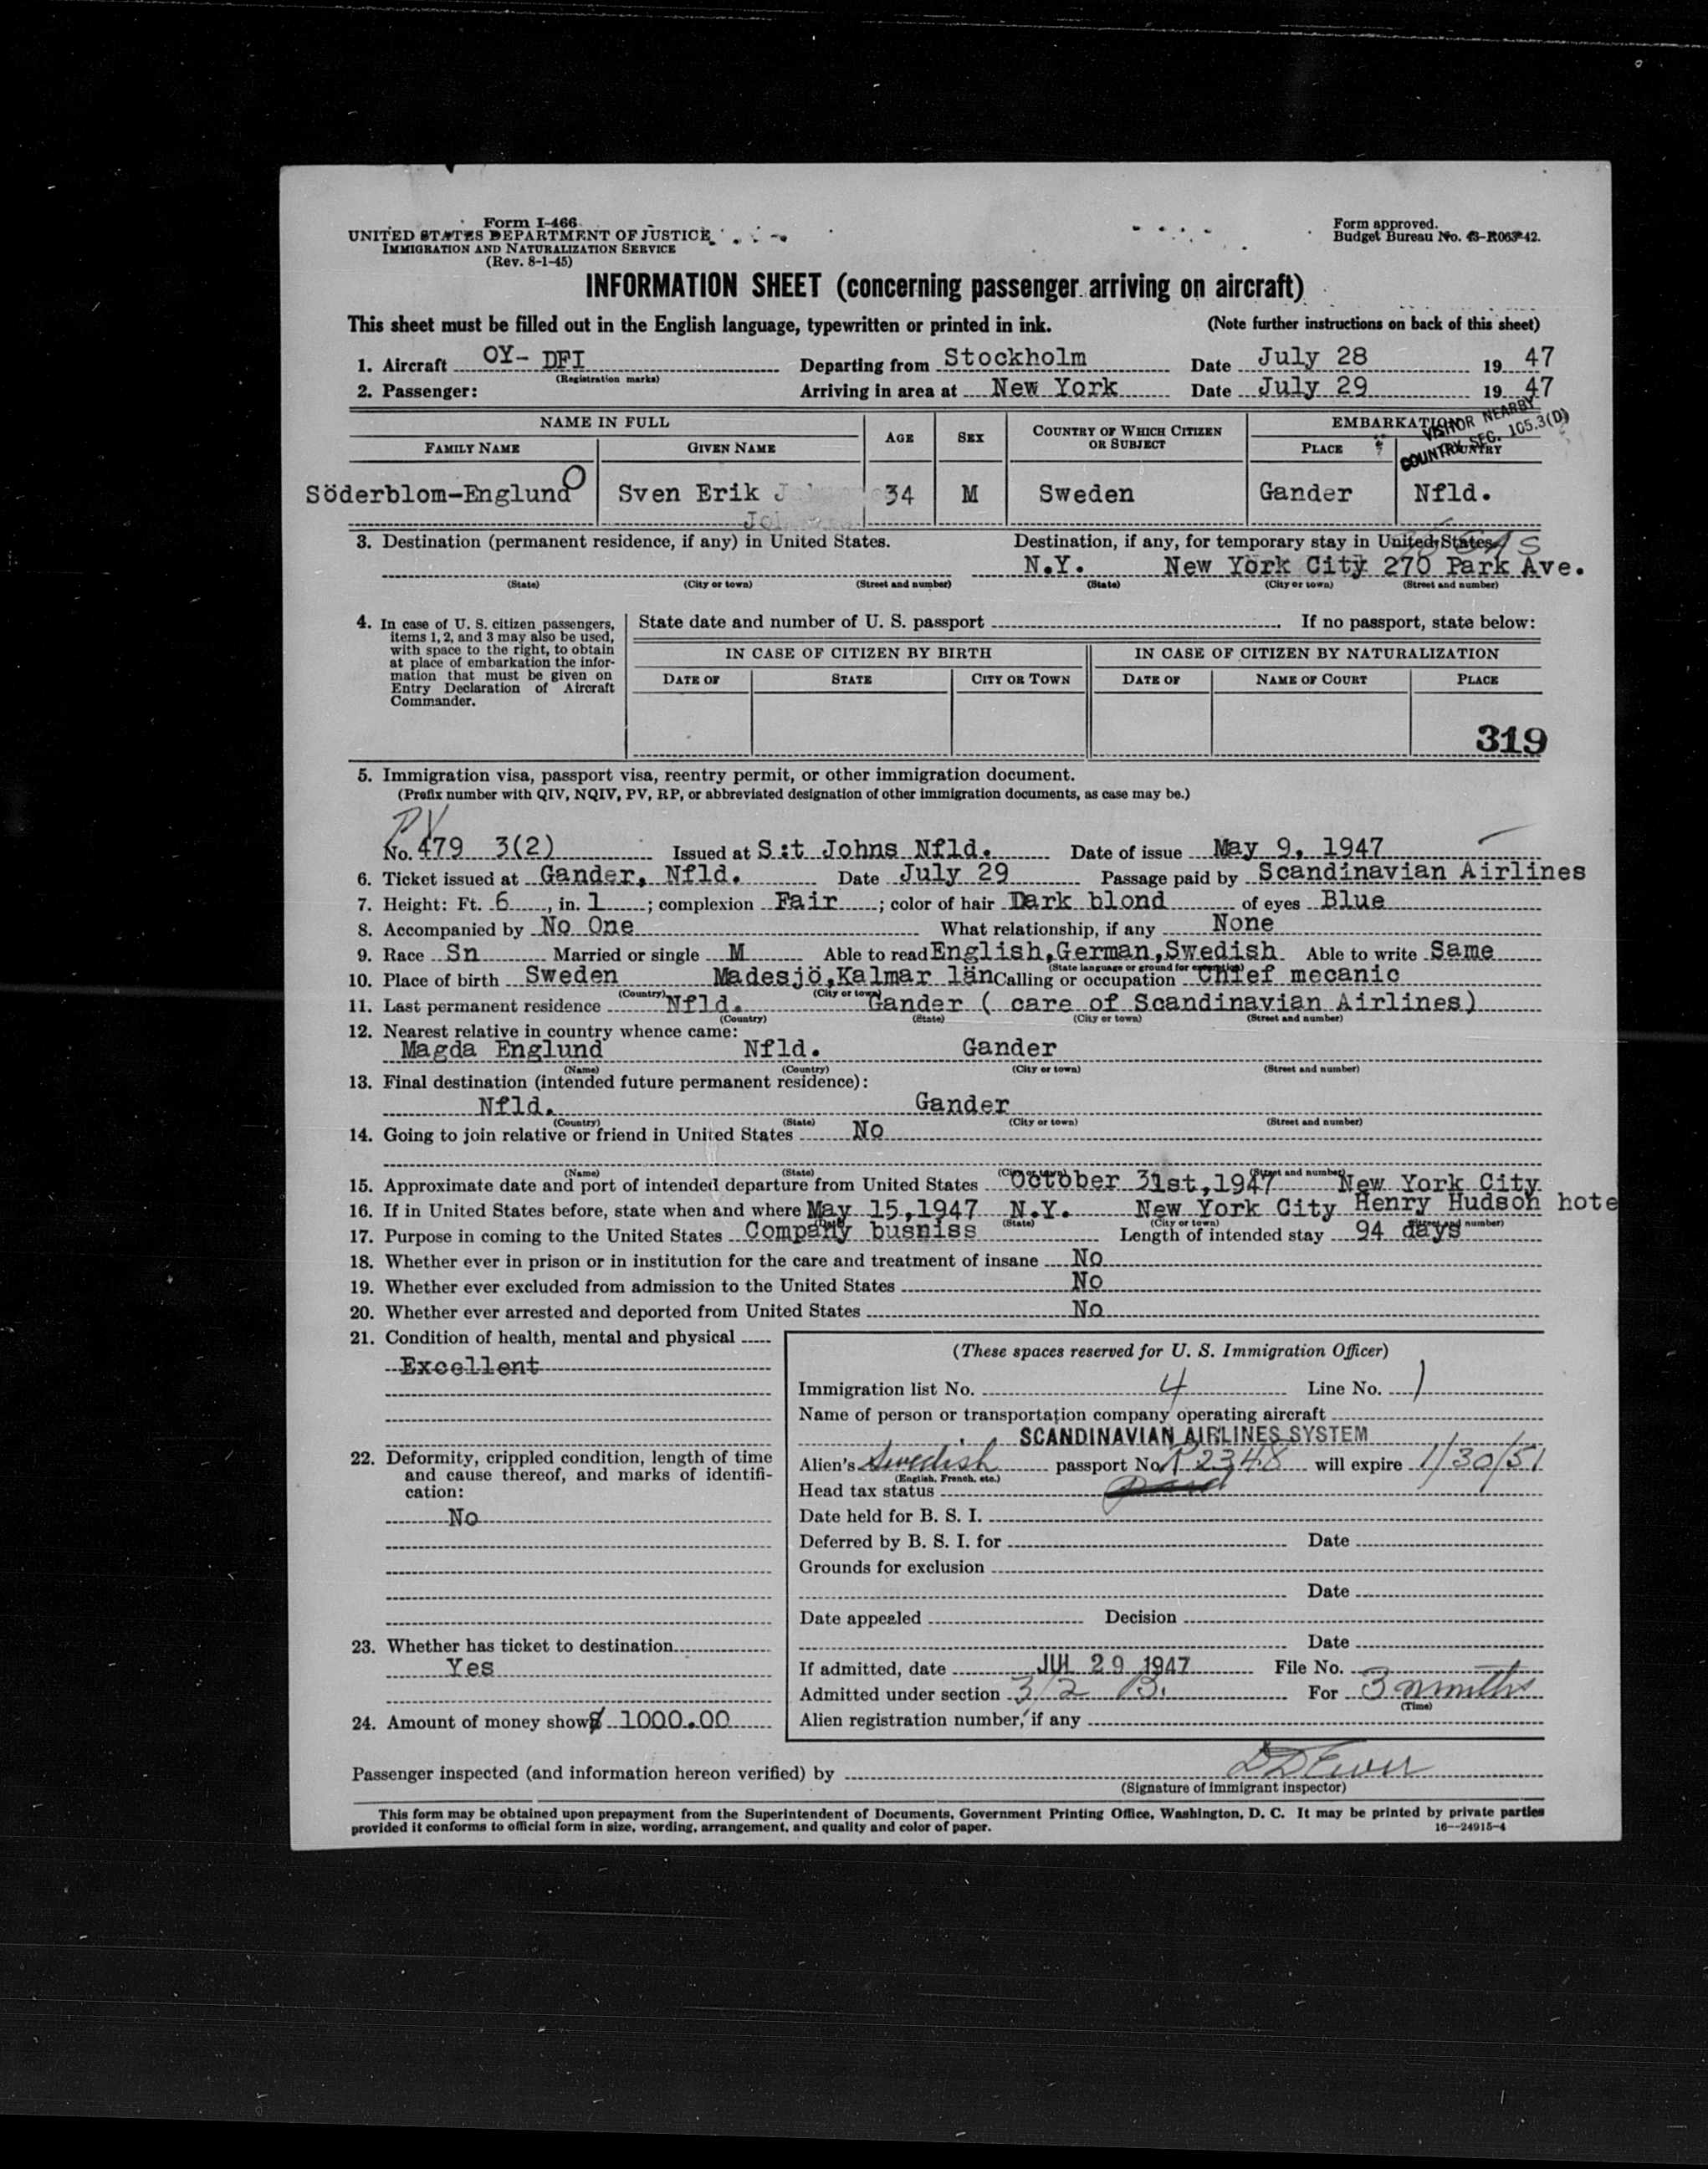 Form I-466
UNITED STATES DEPARTMENT OF JUSTICE
IMMIGRATION AND NATURALIZATION SERVICE
(Rev. 8-1-45)
Form approved.
Budget Bureau No. 43-R063-42.
INFORMATION SHEET (concerning passenger arriving on aircraft)
This sheet must be filled out in the English language, typewritten or printed in ink. (Note further instructions on back of this sheet)
1. Aircraft OY- DFI Departing from Stockholm Date July 28 19 47
(Registration marks)
2. Passenger: Arriving in area at New York Date July 29 19 47
VISITOR NEARBY
COUNTRY SEC. 105.3(D)
NAME IN FULL AGE SEX COUNTRY OF WHICH CITIZEN OR SUBJECT EMBARKATION
FAMILY NAME GIVEN NAME PLACE COUNTRY
Söderblom-Englund Sven Erik 34 M Sweden Gander Nfld.
3. Destination (permanent residence, if any) in United States. Destination, if any, for temporary stay in United States
N.Y. New York City 270 Park Ave.
(State) (City or town) (Street and number) (State) (City or town) (Street and number)
4. In case of U. S. citizen passengers, items 1, 2, and 3 may also be used, with space to the right, to obtain at place of embarkation the information that must be given on Entry Declaration of Aircraft Commander.
State date and number of U. S. passport If no passport, state below:
IN CASE OF CITIZEN BY BIRTH IN CASE OF CITIZEN BY NATURALIZATION
DATE OF STATE CITY OR TOWN DATE OF NAME OF COURT PLACE
319
5. Immigration visa, passport visa, reentry permit, or other immigration document.
(Prefix number with QIV, NQIV, PV, RP, or abbreviated designation of other immigration documents, as case may be.)
PV
No. 479 3(2) Issued at S:t Johns Nfld. Date of issue May 9, 1947
6. Ticket issued at Gander, Nfld. Date July 29 Passage paid by Scandinavian Airlines
7. Height: Ft. 6, in. 1; complexion Fair; color of hair Dark blond of eyes Blue
8. Accompanied by No One What relationship, if any None
9. Race Sn Married or single M Able to read English,German,Swedish Able to write Same
(State language or ground for exemption)
10. Place of birth Sweden Madesjö,Kalmar län Calling or occupation Chief mecanic
(Country) (City or town)
11. Last permanent residence Nfld. Gander ( care of Scandinavian Airlines)
(Country) (State) (City or town) (Street and number)
12. Nearest relative in country whence came:
Magda Englund Nfld. Gander
(Name) (Country) (City or town) (Street and number)
13. Final destination (intended future permanent residence):
Nfld. Gander
(Country) (State) (City or town) (Street and number)
14. Going to join relative or friend in United States No
(Name) (State) (City or town) (Street and number)
15. Approximate date and port of intended departure from United States October 31st,1947 New York City
16. If in United States before, state when and where May 15,1947 N.Y. New York City Henry Hudson hote
(Date) (State) (City or town) (Street and number)
17. Purpose in coming to the United States Company busniss Length of intended stay 94 days
18. Whether ever in prison or in institution for the care and treatment of insane No
19. Whether ever excluded from admission to the United States No
20. Whether ever arrested and deported from United States No
21. Condition of health, mental and physical
Excellent
22. Deformity, crippled condition, length of time and cause thereof, and marks of identification:
No
23. Whether has ticket to destination
Yes
24. Amount of money shown $ 1000.00
(These spaces reserved for U. S. Immigration Officer)
Immigration list No. 4 Line No. 1
Name of person or transportation company operating aircraft
SCANDINAVIAN AIRLINES SYSTEM
Alien's Swedish passport No. R 2348 will expire 1/30/51
(English, French, etc.)
Head tax status
Date held for B. S. I.
Deferred by B. S. I. for Date
Grounds for exclusion
Date
Date appealed Decision
Date
If admitted, date JUL 29 1947 File No.
Admitted under section 3/2 B. For 3 months
(Time)
Alien registration number, if any
Passenger inspected (and information hereon verified) by
(Signature of immigrant inspector)
This form may be obtained upon prepayment from the Superintendent of Documents, Government Printing Office, Washington, D. C. It may be printed by private parties
provided it conforms to official form in size, wording, arrangement, and quality and color of paper. 16—24915-4